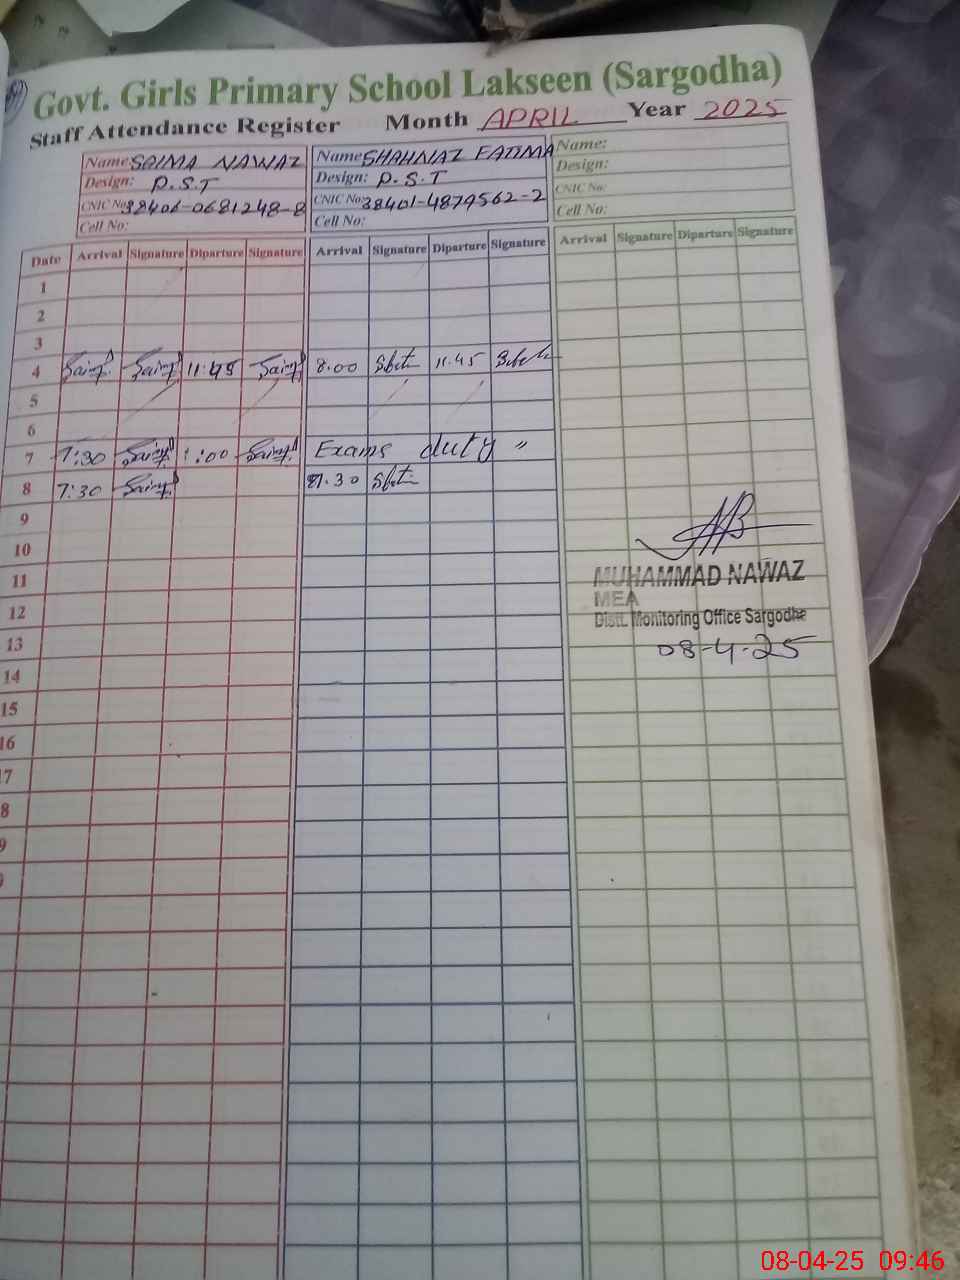 Govt. Girls Primary School Lakseen (Sargodha)
Staff Attendance Register Month APRIL Year 2025
Name SAIMA NAWAZ Name SHAHNAZ FATIMA Name:
Design: P.S.T Design: P.S.T Design:
CNIC No: 38406-0681248-8 CNIC No: 38401-4879562-2 CNIC No:
Cell No: Cell No: Cell No:
Date Arrival Signature Diparture Signature Arrival Signature Diparture Signature Arrival Signature Diparture Signature
1
2
3
4 11:45 8.00 11.45
5
6
7 7:30 1:00 Exams duty "
8 7:30
9
10
11
MUHAMMAD NAWAZ
MEA
12
Distt. Monitoring Office Sargodha
13
08-4-25
14
15
16
17
8
9
08-04-25 09:46